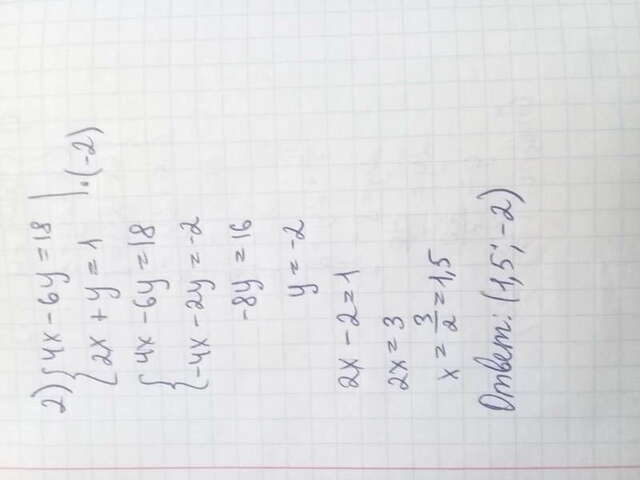 2) { 4x - 6y = 18 |
{ 2x + y = 1 | · (-2)
{ 4x - 6y = 18
{ -4x - 2y = -2
-8y = 16
y = -2
2x - 2 = 1
2x = 3
x = 3/2 = 1,5
Ответ: (1,5; -2)